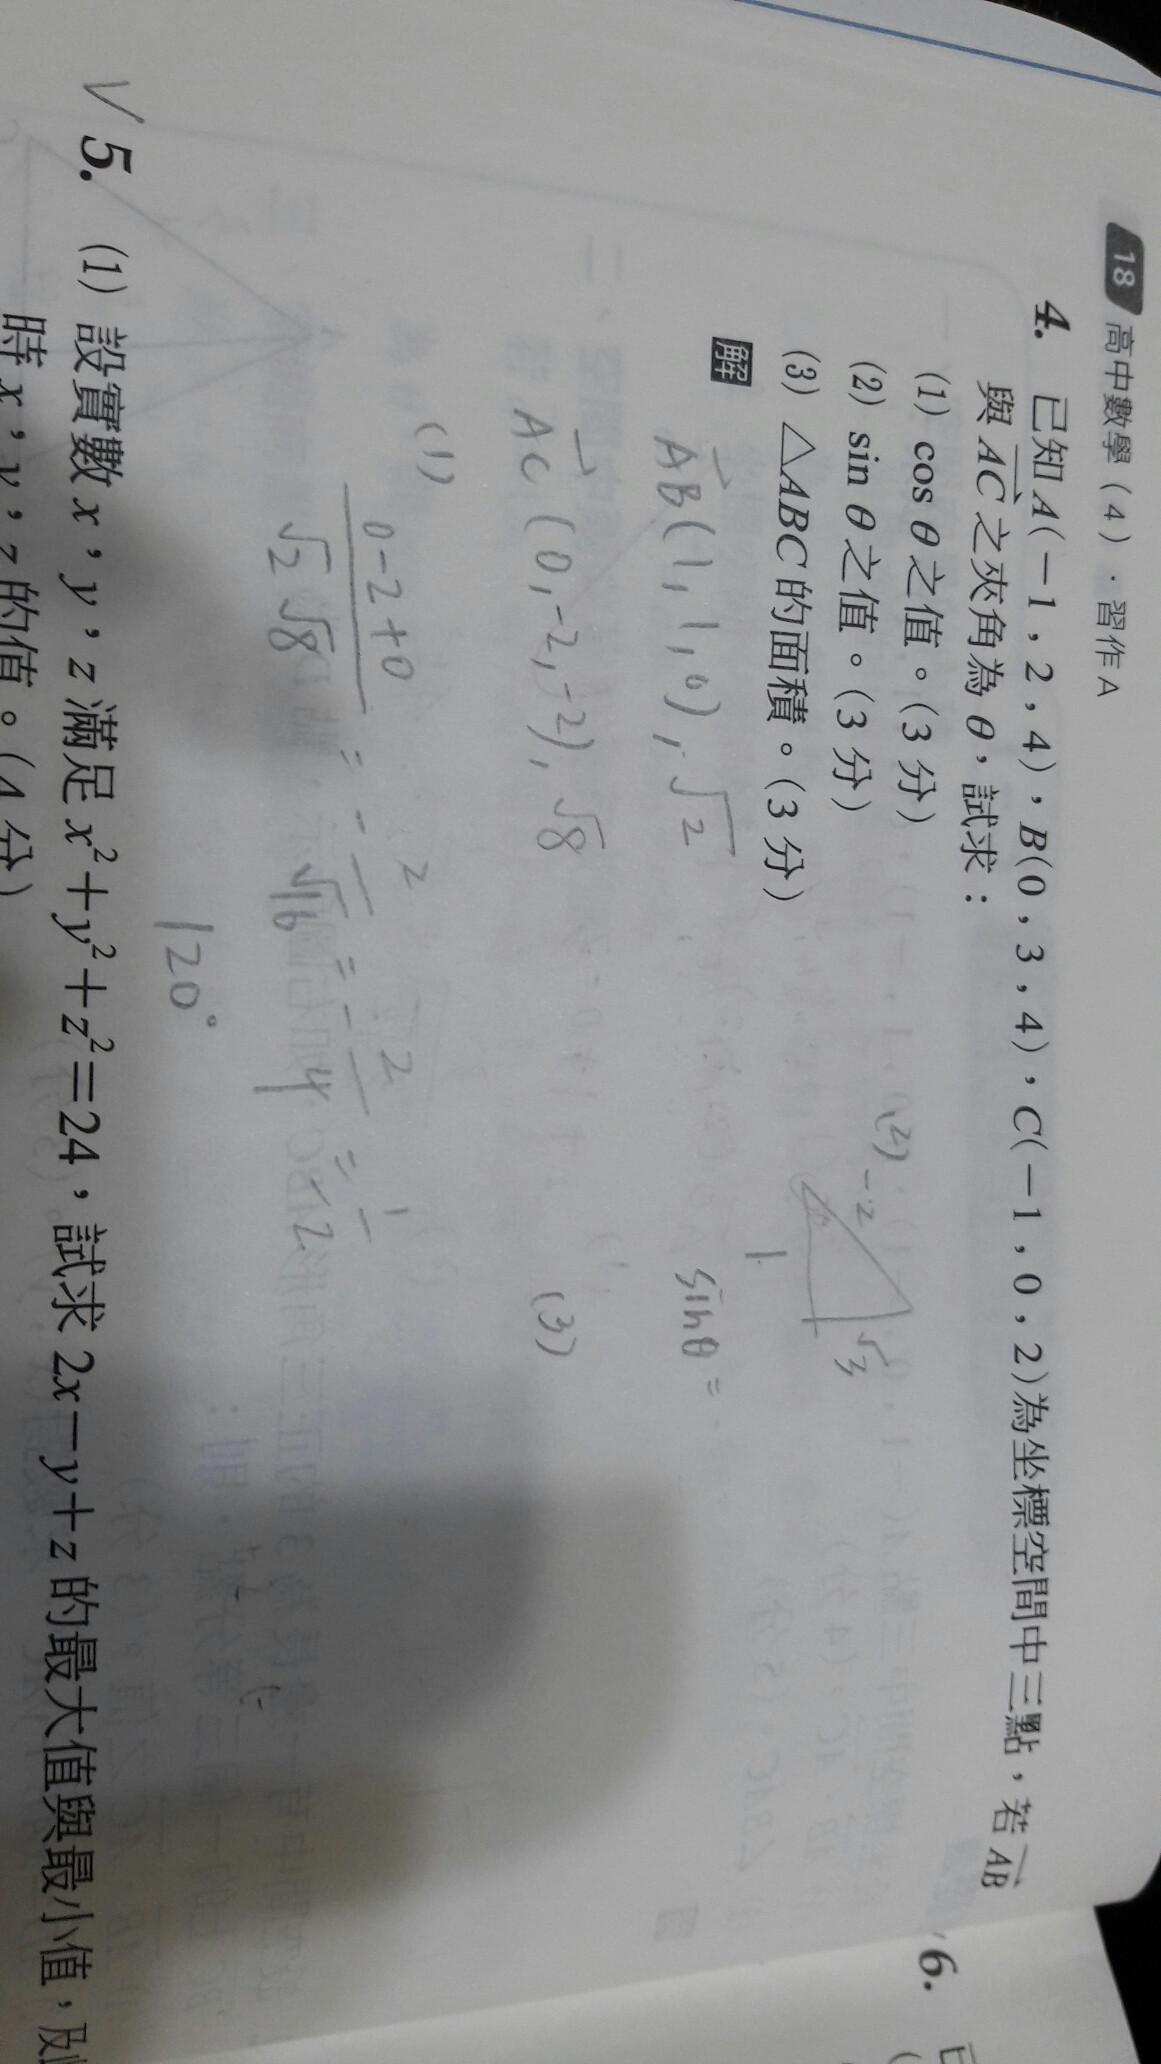 18 高中數學（4）．習作A
4. 已知 A(−1，2，4)，B(0，3，4)，C(−1，0，2)為坐標空間中三點，若 AB
與 AC 之夾角為 θ，試求：
(1) cos θ 之值。(3 分)
(2) sin θ 之值。(3 分)
(3) △ABC 的面積。(3 分)
解
AB(1,1,0), √2
AC(0,-2,-2), √8
(1)
0-2+0 / √2 √8 = - 2 / √16 = - 2 / 4 = - 1 / 2
120°
(2)
-2
√3
1
sinθ =
(3)
√ 5. (1) 設實數 x，y，z 滿足 x²+y²+z²=24，試求 2x−y+z 的最大值與最小值，
時 x，y，z 的值。(4 分)
6.